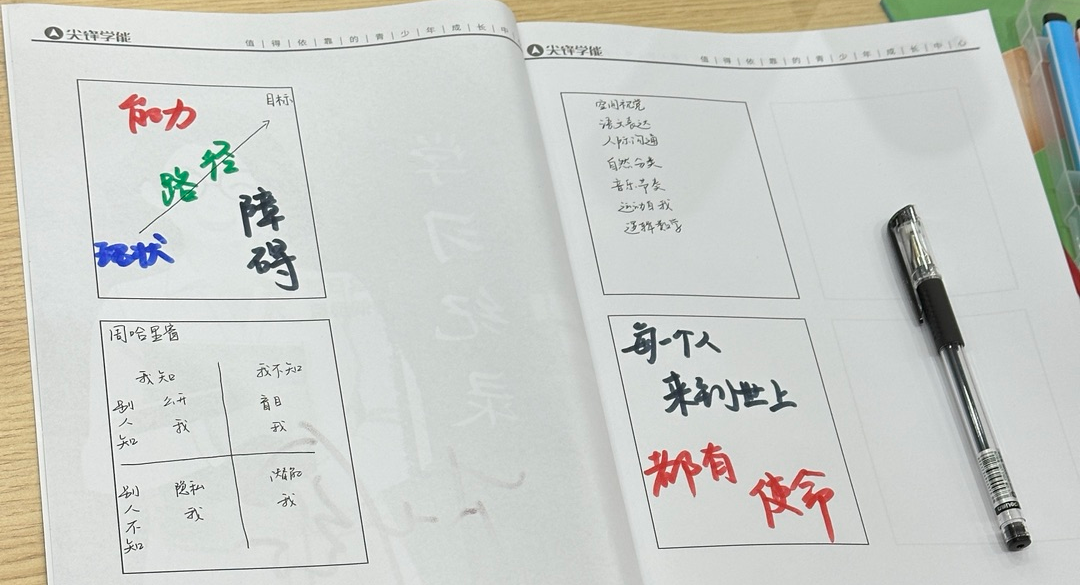 尖锋学能
值|得|依|靠|的|青|少|年|成|长|中
能力
目标
路径
障碍
现状
周哈里窗
我知
我不知
别人知
公开我
盲目我
别人不知
隐私我
潜能我
尖锋学能
值|得|依|靠|的|青|少|年|成|长|中|心
空间视觉
语文表达
人际沟通
自然分类
音乐节奏
运动自我
逻辑数学
每一个人
来到世上
都有
使命
学习纪录